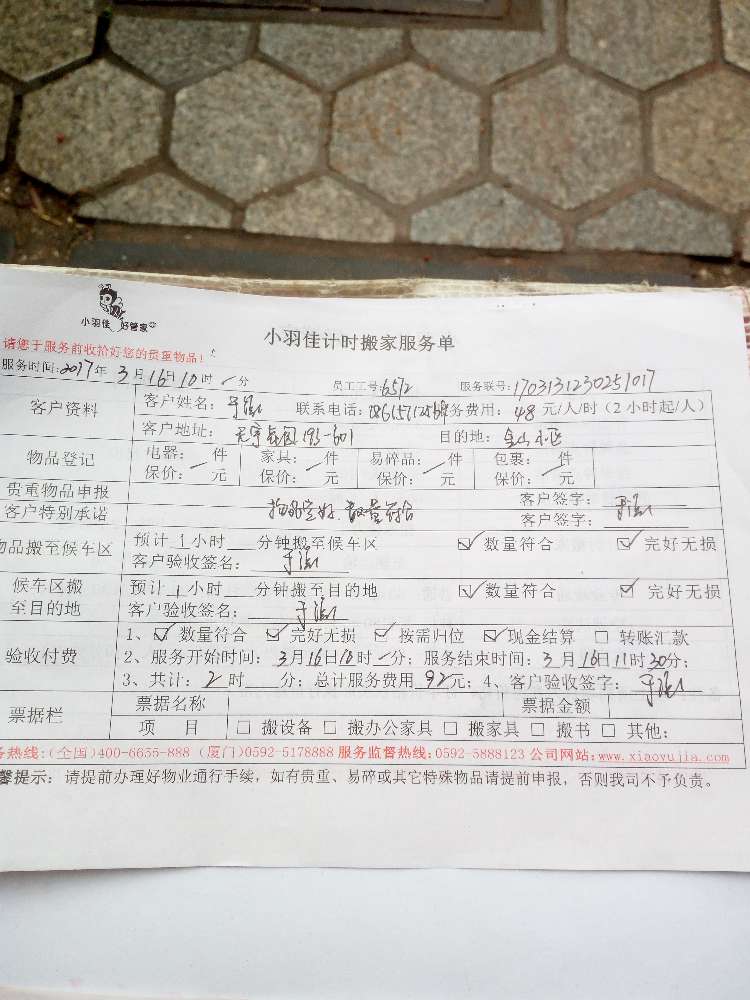 小羽佳 好管家
小羽佳计时搬家服务单
请您于服务前收拾好您的贵重物品！
服务时间：2017年 3月16日10时 分 员工工号：6512 服务联号：1703131230251017
客户资料 客户姓名： 联系电话： 务费用：48元/人/时（2小时起/人）
客户地址： 193-601 目的地：金山小区
物品登记 电器： 件 家具： 件 易碎品： 件 包裹： 件
保价： 元 保价： 元 保价： 元 保价： 元
贵重物品申报 客户签字：
客户特别承诺 物品完好、数量符合 客户签字：
物品搬至候车区 预计1小时 分钟搬至候车区 ☑数量符合 ☑完好无损
客户验收签名：
候车区搬至目的地 预计1小时 分钟搬至目的地 ☑数量符合 ☑完好无损
客户验收签名：
验收付费 1、☑数量符合 ☑完好无损 ☑按需归位 ☑现金结算 □转账汇款
2、服务开始时间：3月16日10时 分；服务结束时间：3月16日11时30分；
3、共计：2时 分；总计服务费用92元；4、客户验收签字：
票据栏 票据名称 票据金额
项 目 □搬设备 □搬办公家具 □搬家具 □搬书 □其他：
务热线：(全国)400-6655-888 (厦门)0592-5178888 服务监督热线：0592-5888123 公司网站：www.xiaoyujia.com
馨提示：请提前办理好物业通行手续，如有贵重、易碎或其它特殊物品请提前申报，否则我司不予负责。